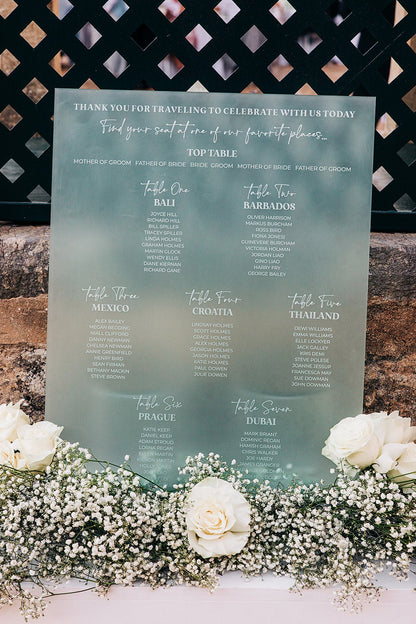 THANK YOU FOR TRAVELING TO CELEBRATE WITH US TODAY
Find your seat at one of our favorite places...
TOP TABLE
MOTHER OF GROOM FATHER OF BRIDE BRIDE GROOM MOTHER OF BRIDE FATHER OF GROOM
Table One
BALI
JOYCE HILL
RICHARD HILL
BILL SPILLER
TRACEY SPILLER
LINDA HOLMES
GRAHAM HOLMES
MARTIN GLOOK
WENDY ELLIS
DIANE KIERNAN
RICHARD GANE
Table Two
BARBADOS
OLIVER HARRISON
MARKUS BURCHAM
ROSS BIRD
FIONA JONES
GUINEVERE BURCHAM
VICTORIA HOLMAN
JORDAN LIAO
GINO LIAO
HARRY FRY
GEORGE BAILEY
Table Three
MEXICO
ALEX BAILEY
MEGAN REDDING
NIALL CLIFFORD
DANNY NEWNHAM
CHELSEA NEWNHAM
ANNIE GREENFIELD
HENRY BIRD
SEAN FIXHAN
BETHANY MACKIN
STEVE BROWN
Table Four
CROATIA
LINDSAY HOLMES
SCOTT HOLMES
GRACE HOLMES
ALEX HOLMES
GEORGIA HOLMES
JASON HOLMES
KATIE HOLMES
PAUL DOWEN
JULIE DOWEN
Table Five
THAILAND
DEWI WILLIAMS
EMMA WILLIAMS
ELLE LOCKYER
JACK GALLEY
KRIS DEMI
STEVE POLISE
JOANNE JESSUP
FRANCESCA MAY
SUE DOWMAN
JOHN DOWMAN
Table Six
PRAGUE
KATIE KEEP
DANIEL KEEP
ADAM STROUD
LORNA PEGAN
Table Seven
DUBAI
MARK BRIANT
DOMINIC REGAN
HAMISH GRAHAM
CHRIS WALKER
JOE HARDY
JAMES GRAINGER